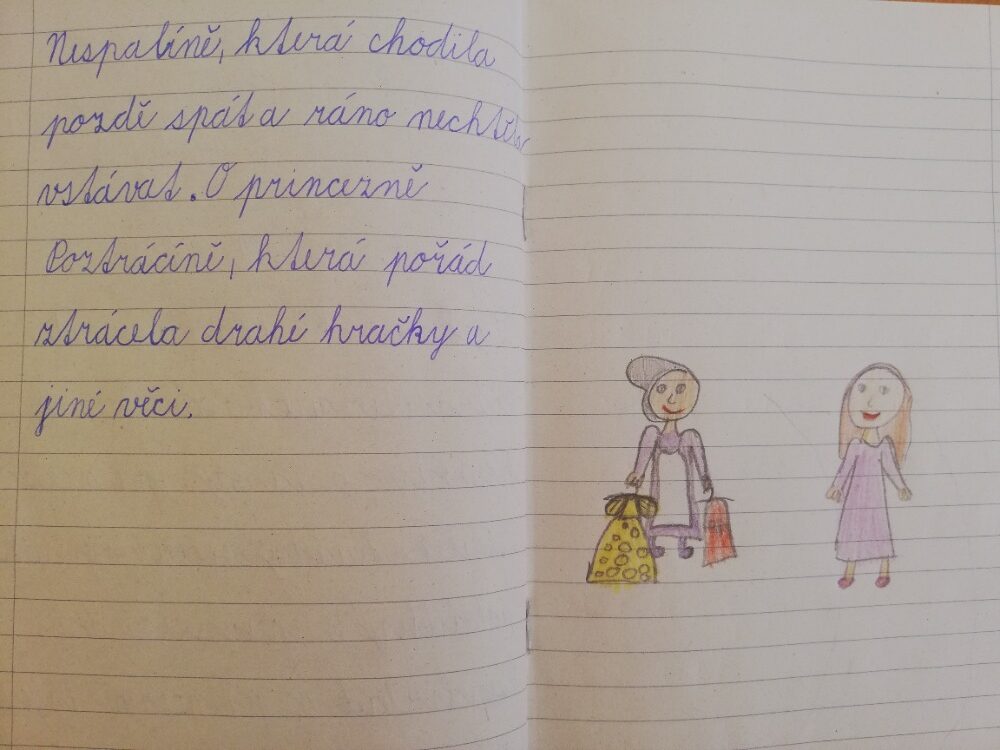 Nespalíně, která chodila
pozdě spát a ráno nechtěla
vstávat. O princezně
Poztrácíně, která pořád
ztrácela drahé hračky a
jiné věci.